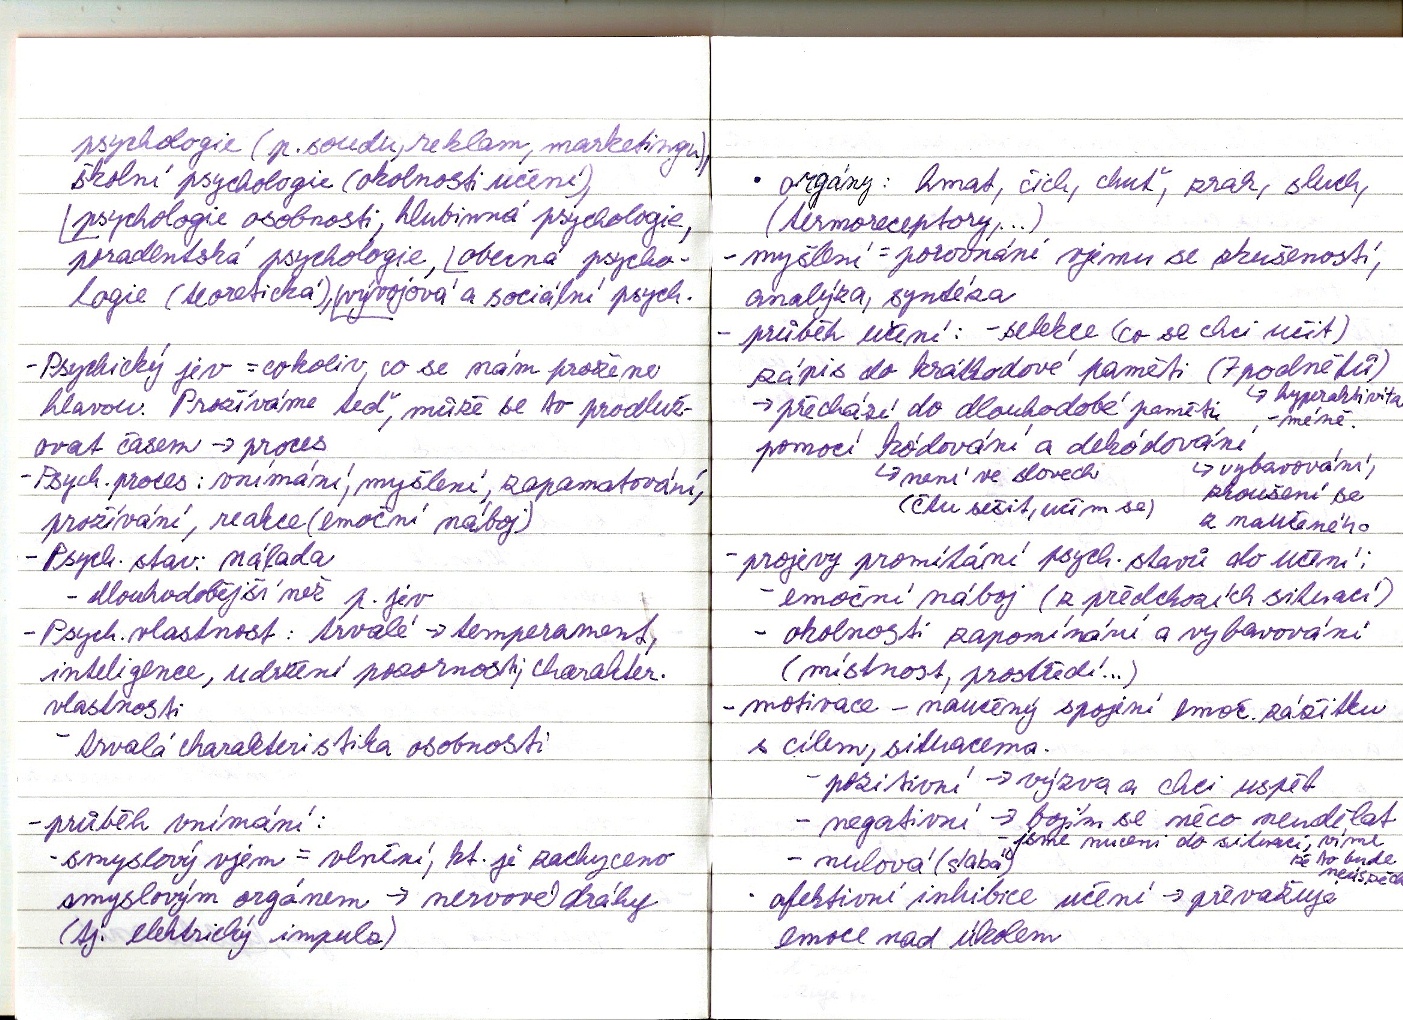 psychologie (p. soudu, reklam, marketingu),
školní psychologie (okolnosti učení),
psychologie osobnosti, hlubinná psychologie,
poradentská psychologie, obecná psycho-
logie (teoretická), vývojová a sociální psych.
- Psychický jev = cokoliv, co se nám prožene
hlavou. Prožíváme teď, může se to prodluž-
ovat časem → proces
- Psych. proces: vnímání, myšlení, zapamatování,
prožívání, reakce (emoční náboj)
- Psych. stav: nálada
- dlouhodobější než p. jev
- Psych. vlastnost: trvalé → temperament,
inteligence, udržení pozornosti, charakter.
vlastnosti
- trvalá charakteristika osobnosti
- průběh vnímání:
- smyslový vjem = vlnění, kt. je zachyceno
smyslovým orgánem → nervové dráhy
(tj. elektrický impulz)
• orgány: hmat, čich, chuť, zrak, sluch,
(termoreceptory,...)
- myšlení = porovnání vjemu se zkušeností,
analýza, syntéza
- průběh učení: - selekce (co se chci učit)
zápis do krátkodové paměti (7 podnětů)
↳ hyperaktivita
- méně.
→ přechází do dlouhodobé paměti
pomocí kódování a dekódování
↳ není ve slovech
(čtu sešit, učím se)
↳ vybavování,
zkoušení se
z naučeného
- projevy promítání psych. stavů do učení:
- emoční náboj (z předchozích situací)
- okolnosti zapomínání a vybavování
(místnost, prostředí...)
- motivace - naučený spojení emoč. zážitku
s cílem, situacema.
- pozitivní → výzva a chci uspět
- negativní → bojím se něco neudělat
- jsme nuceni do situací, víme
že to bude
neúspěch
- nulová (slabá)
• afektivní inhibice učení → převažuje
emoce nad úkolem